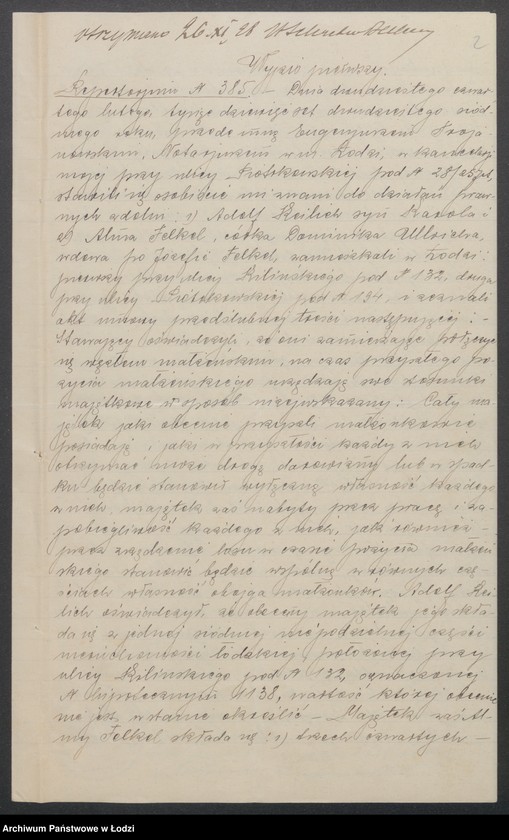 otrzymano 26.XI.28
2
Wypis pierwszy.
Repertorjum N. 385. – Dnia dwudziestego czwar
tego lutego, tysiąc dziewięćset dwudziestego siód
mego roku, przede mną Eugenjuszem Troja
nowskim, Notarjuszem w m. Łodzi, w kancelarji
mojej przy ulicy Piotrkowskiej pod N 
stawili się osobiście mi znani do działań praw
nych zdolni: 1) Adolf Keilich syn Karola i
2) Alma Felkel, córka Dominika Ullricha,
wdowa po Józefie Felkel, zamieszkali w Łodzi:
pierwszy przy ulicy Kilińskiego pod N 132, druga
przy ulicy Piotrkowskiej pod N 134, i zeznali
akt umowy przedślubnej treści następującej: –
Stawający oświadczyli, że oni zamierzając połączyć
się węzłem małżeńskim, na czas przyszłego po
życia małżeńskiego urządzają swe stosunki
majątkowe w sposób niżej wskazany: Cały ma
jątek jaki obecnie przyszli małżonkowie
posiadają, i jaki w przyszłości każdy z nich
otrzymać może drogą darowizny lub w spad
ku będzie stanowił wyłączną własność każdego
z nich, majątek zaś nabyty przez pracę i za
pobiegliwość każdego z nich, jak również
przez zrządzenie losu w czasie pożycia małżeń
skiego stanowić będzie wspólną w równych czę
ściach własność obojga małżonków. Adolf Kei
lich oświadczył, że obecny majątek jego skła
da się z jednej siódmej niepodzielnej części
nieruchomości łódzkiej położonej przy
ulicy Kilińskiego pod N 132, oznaczonej
N hipotecznym 1138, wartość której obecnie
nie jest w stanie określić – Majątek zaś Al
my Felkel składa się: 1) trzech czwartych –
Archiwum Państwowe w Łodzi